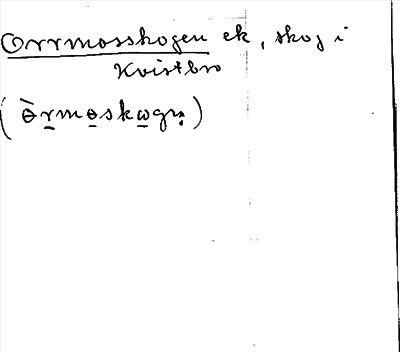 Orrmosskogen ek, skog i
Kvistbro
(ɵ̀rmɵskωgn̥)